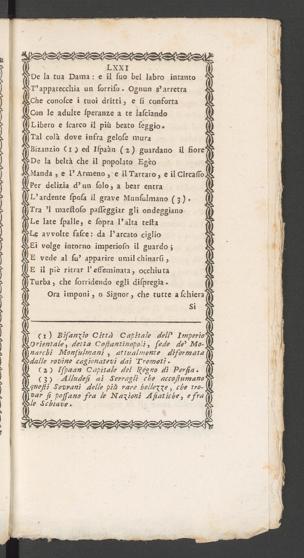 LXXI
De la tua Dama: e il suo bel labro intanto
T'apparecchia un sorriso. Ognun s'arretra
Che conosce i tuoi dritti, e si conforta
Con le adulte speranze a te lasciando
Libero e scarco il più beato seggio.
Tal colà dove infra gelose mura
Bizanzio (1) ed Ispaàn (2) guardano il fiore
De la beltà che il popolato Egèo
Manda, e l'Armeno, e il Tartaro, e il Circasso
Per delizia d'un solo, a bear entra
L'ardente sposa il grave Munsulmano (3).
Tra 'l maestoso passeggiar gli ondeggiano
Le late spalle, e sopra l'alta testa
Le avvolte fasce: da l'arcato ciglio
Ei volge intorno imperioso il guardo;
E vede al su' apparire umil chinarsi,
E il piè ritrar l'effeminata, occhiuta
Turba, che sorridendo egli dispregia.
Ora imponi, o Signor, che tutte a schiera
Si
(1) Bisanzio Città Capitale dell' Imperio
Orientale, detta Costantinopoli, sede de' Mo-
narchi Monsulmani, attualmente diformata
dalle rovine cagionatevi dai Tremoti.
(2) Ispaan Capitale del Regno di Persia.
(3) Alludesi ai Serragli che accostumano
questi Sovrani delle più rare bellezze, che tro-
var si possano fra le Nazioni Asiatiche, e fra
le Schiave.